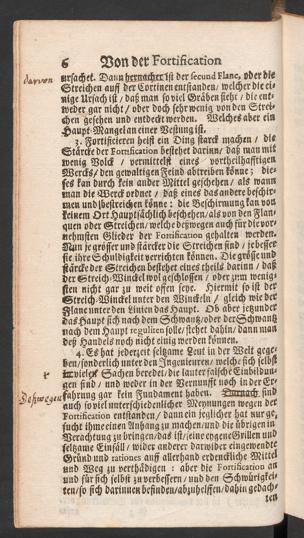 6 Von der Fortification
ursachet. Dann hernacher ist der second Flanc, oder die
Streichen auff der Cortinen entstanden/ welcher die ei-
nige Ursach ist / daß man so viel Gräben sieht / die ent-
weder gar nicht / oder doch sehr wenig von den Strei-
chen gesehen und entdeckt werden. Welches aber ein
Haupt-Mangel an einer Vestung ist.
3. Fortificieren heist ein Ding starck machen / die
Stärcke der Fortification bestehet darinn/ daß man mit
wenig Volck / vermittelst eines vortheilhafftigen
Wercks/ den gewaltigen Feind abtreiben könne; die-
ses kan durch kein ander Mittel geschehen/ als wann
man die Werck ordnet / daß eines das andere beschir-
men und bestreichen könne: die Beschirmung kan von
keinem Ort Hauptsächlich beschehen/als von den Flan-
quen oder Streichen/welche deßwegen auch für die vor-
nehmsten Glieder der Fortification gehalten werden.
Nun je grösser und stärcker die Streichen sind / je besser
sie ihre Schuldigkeit verrichten können. Die grösse und
stärcke der Streichen bestehet eines theils darinn / daß
der Streich-Winckel wol geschlossen / oder zum wenig-
sten nicht gar zu weit offen seye. Hiermit so ist der
Streich-Winckel unter den Winckeln / gleich wie der
Flanc unter den Linien das Haupt. Ob aber jetzunder
das Haupt sich nach dem Schwantz/oder der Schwantz
nach dem Haupt regulieren solle/stehet dahin/dann man
deß Handels noch nicht einig werden können.
4. Es hat jederzeit seltzame Leut in der Welt gege-
ben/sonderlich unter den Ingenieuren/ welche sich selbst
vieler Sachen beredet/ die lauter falsche Einbildun-
gen sind / und weder in der Vernunfft noch in der Er-
fahrung gar kein Fundament haben. Darnach sind
auch so viel unterschiedenlicher Meynungen wegen der
Fortification entstanden/ dann ein jeglicher hat nur ge-
sucht ihme einen Anhang zu machen/und die übrigen in
Verachtung zu bringen/das ist/seine eygene Grillen und
seltzame Einfäll / wider anderer darwider eingewendte
Gründ und rationes auff allerhand erdenckliche Mittel
und Weg zu verthädigen: aber die Fortification an
und für sich selbst zu verbessern / und den Schwürigkei-
ten/so sich darinnen befinden/abzuhelffen/dahin gedach-
ten
darvon
Deßwegen